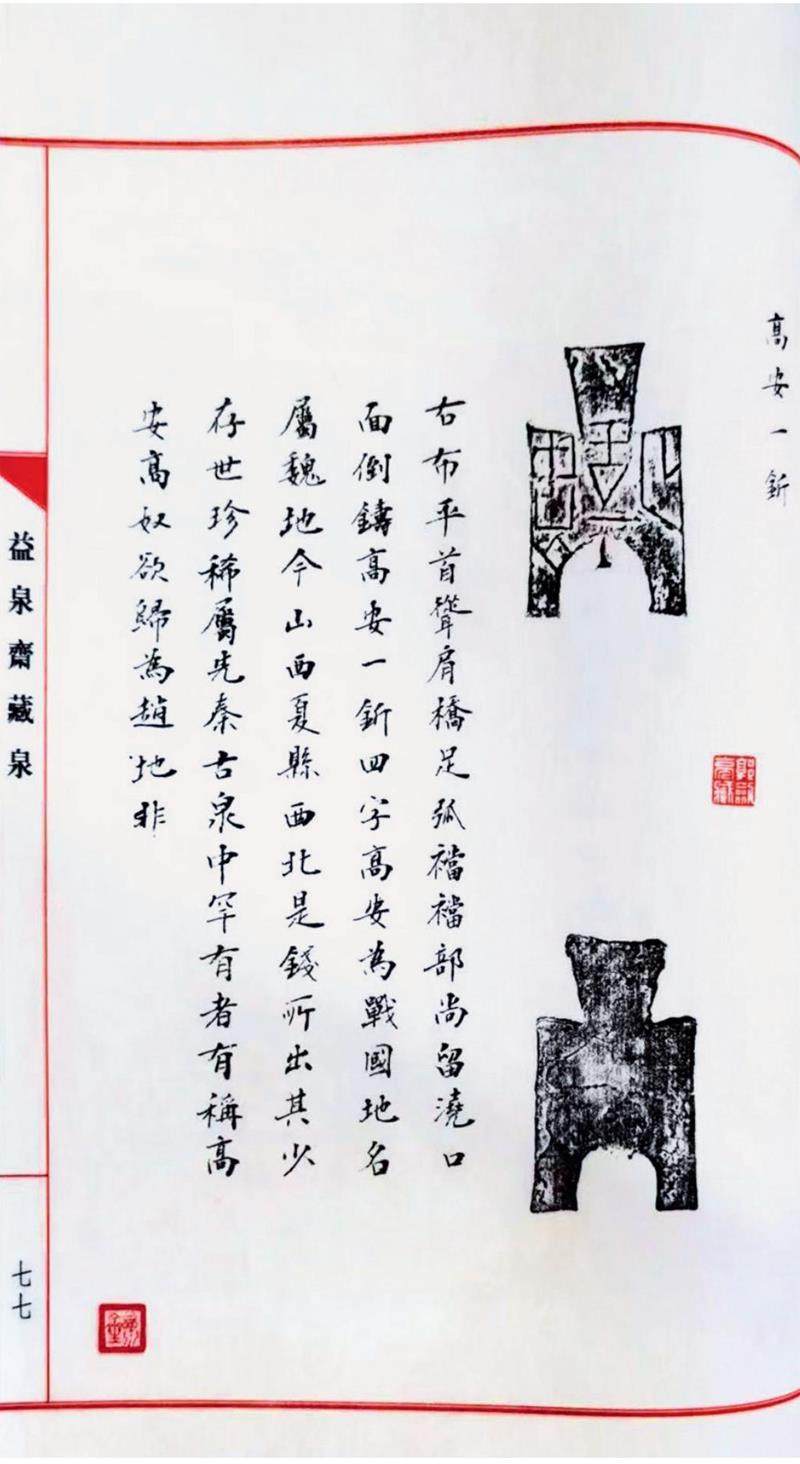 高安一釿
右布平首聳肩橋足弧襠襠部尚留澆口
面倒鑄高安一釿四字高安為戰國地名
屬魏地今山西夏縣西北是錢所出其少
存世珍稀屬先秦古泉中罕有者有稱高
安高奴欲歸為趙地非
益泉齋藏泉
七七